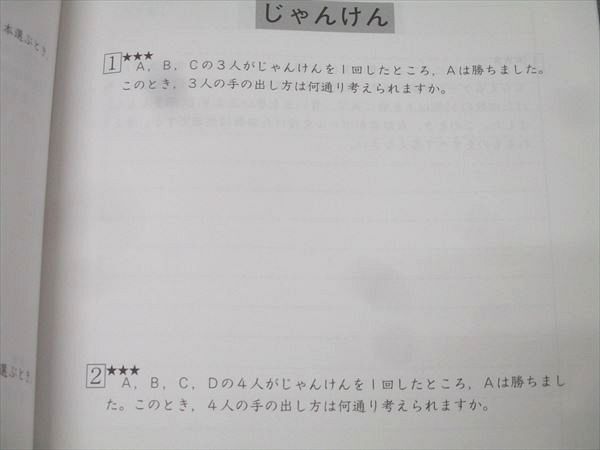 じゃんけん
本選ぶとき,
1 ★★★
A, B, Cの3人がじゃんけんを1回したところ, Aは勝ちました。
このとき, 3人の手の出し方は何通り考えられますか。
選ぶとき,
2 ★★★
A, B, C, Dの4人がじゃんけんを1回したところ, Aは勝ちまし
た。このとき, 4人の手の出し方は何通り考えられますか。